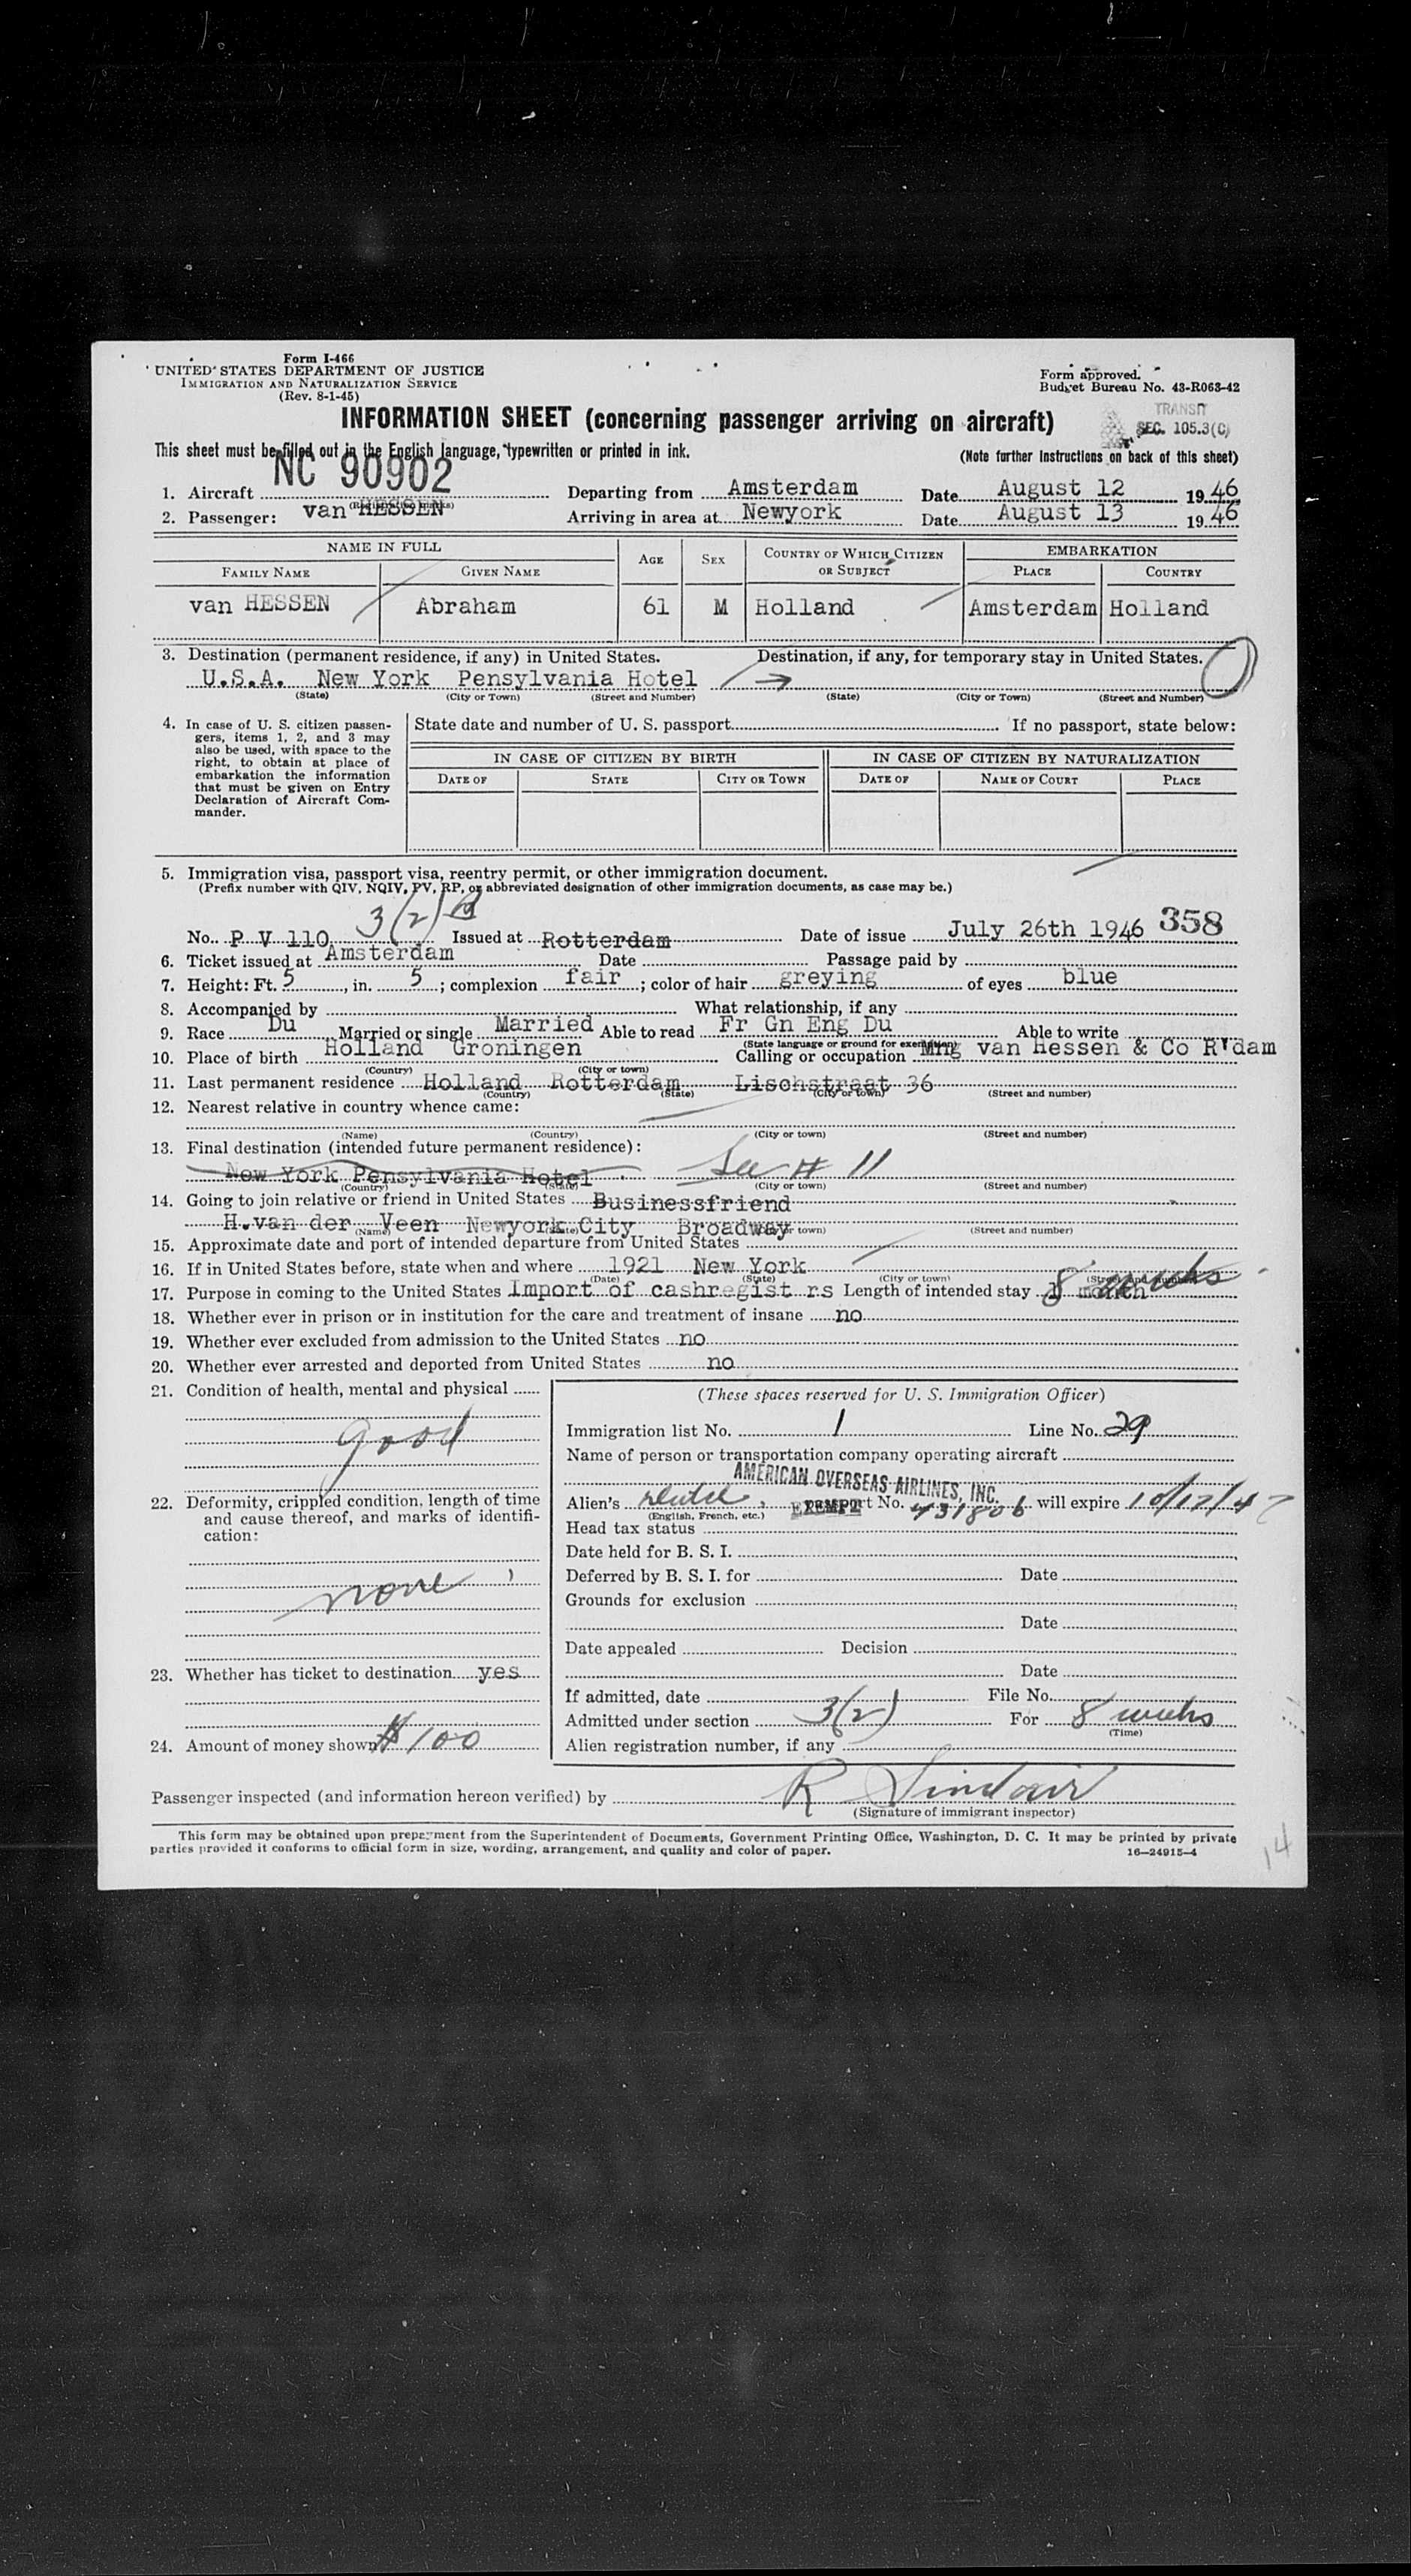 Form I-466
UNITED STATES DEPARTMENT OF JUSTICE
IMMIGRATION AND NATURALIZATION SERVICE
(Rev. 8-1-45)
Form approved.
Budget Bureau No. 43-R063-42
INFORMATION SHEET (concerning passenger arriving on aircraft)
TRANSIT
SEC. 105.3(C)
This sheet must be filled out in the English language, typewritten or printed in ink.
(Note further instructions on back of this sheet)
NC 90902
1. Aircraft
(Registration marks)
Departing from Amsterdam Date August 12 1946
2. Passenger: van HESSEN Arriving in area at Newyork Date August 13 1946
NAME IN FULL AGE SEX COUNTRY OF WHICH CITIZEN OR SUBJECT EMBARKATION
FAMILY NAME GIVEN NAME PLACE COUNTRY
van HESSEN Abraham 61 M Holland Amsterdam Holland
3. Destination (permanent residence, if any) in United States. Destination, if any, for temporary stay in United States.
U.S.A. New York Pensylvania Hotel
(State) (City or Town) (Street and Number) (State) (City or Town) (Street and Number)
4. In case of U. S. citizen passengers, items 1, 2, and 3 may also be used, with space to the right, to obtain at place of embarkation the information that must be given on Entry Declaration of Aircraft Commander.
State date and number of U. S. passport If no passport, state below:
IN CASE OF CITIZEN BY BIRTH IN CASE OF CITIZEN BY NATURALIZATION
DATE OF STATE CITY OR TOWN DATE OF NAME OF COURT PLACE
5. Immigration visa, passport visa, reentry permit, or other immigration document.
(Prefix number with QIV, NQIV, PV, RP, or abbreviated designation of other immigration documents, as case may be.)
3(2)
No. P V 110 Issued at Rotterdam Date of issue July 26th 1946 358
6. Ticket issued at Amsterdam Date Passage paid by
7. Height: Ft. 5, in. 5; complexion fair; color of hair greying of eyes blue
8. Accompanied by What relationship, if any
9. Race Du Married or single Married Able to read Fr Gn Eng Du Able to write
(State language or ground for exemption)
10. Place of birth Holland Groningen Calling or occupation Mng van Hessen & Co R'dam
(Country) (City or town)
11. Last permanent residence Holland Rotterdam Lischstraat 36
(Country) (State) (City or town) (Street and number)
12. Nearest relative in country whence came:
(Name) (Country) (City or town) (Street and number)
13. Final destination (intended future permanent residence):
New York Pensylvania Hotel See # 11
(Country) (State) (City or town) (Street and number)
14. Going to join relative or friend in United States Businessfriend
H.van der Veen Newyork City Broadway
(Name) (State) (City or town) (Street and number)
15. Approximate date and port of intended departure from United States
16. If in United States before, state when and where 1921 New York
(Date) (State) (City or town) (Street and number)
17. Purpose in coming to the United States Import of cashregist rs Length of intended stay 1 month 8 weeks
18. Whether ever in prison or in institution for the care and treatment of insane no
19. Whether ever excluded from admission to the United States no
20. Whether ever arrested and deported from United States no
21. Condition of health, mental and physical
good
22. Deformity, crippled condition, length of time and cause thereof, and marks of identification:
none
23. Whether has ticket to destination yes
24. Amount of money shown $100
(These spaces reserved for U. S. Immigration Officer)
Immigration list No. 1 Line No. 29
Name of person or transportation company operating aircraft
AMERICAN OVERSEAS AIRLINES, INC.
Alien's passport No. 431806 will expire 10/17/47
(English, French, etc.)
EXEMPT
Head tax status
Date held for B. S. I.
Deferred by B. S. I. for Date
Grounds for exclusion
Date
Date appealed Decision
Date
If admitted, date File No.
Admitted under section 3(2) For 8 weeks
(Time)
Alien registration number, if any
Passenger inspected (and information hereon verified) by R Sinclair
(Signature of immigrant inspector)
This form may be obtained upon prepayment from the Superintendent of Documents, Government Printing Office, Washington, D. C. It may be printed by private
parties provided it conforms to official form in size, wording, arrangement, and quality and color of paper.
16—24915-4
14